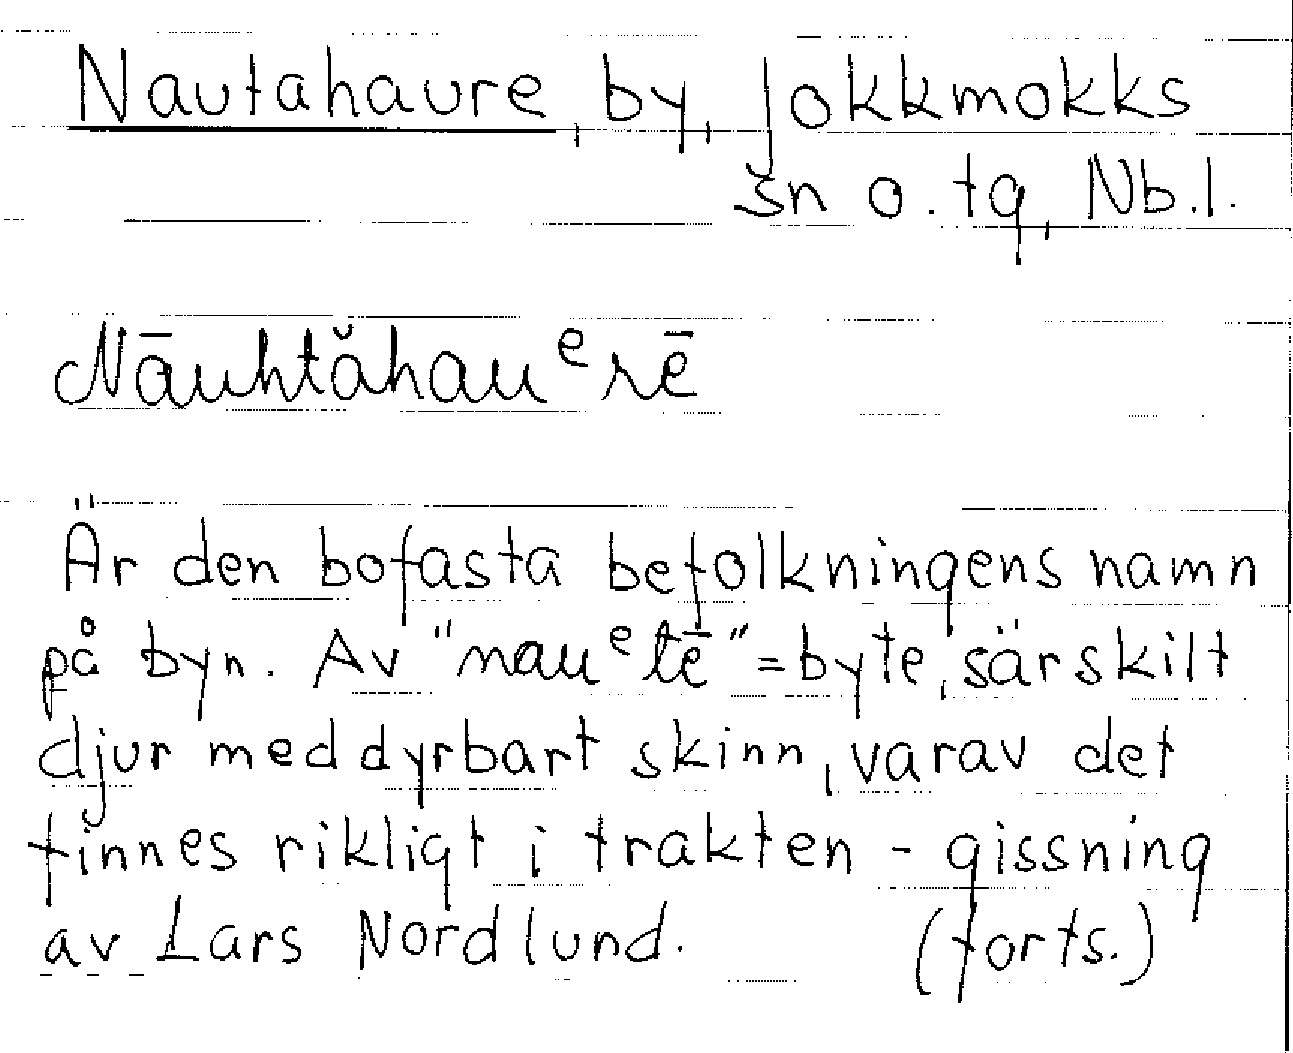 Nautahaure, by, Jokkmokks
sn o. tg, Nb.l.
Nāuhtăhauᵉrē
Är den bofasta befolkningens namn
på byn. Av "nauᵉtē" = byte, särskilt
djur med dyrbart skinn, varav det
finnes rikligt i trakten - gissning
av Lars Nordlund. (forts.)